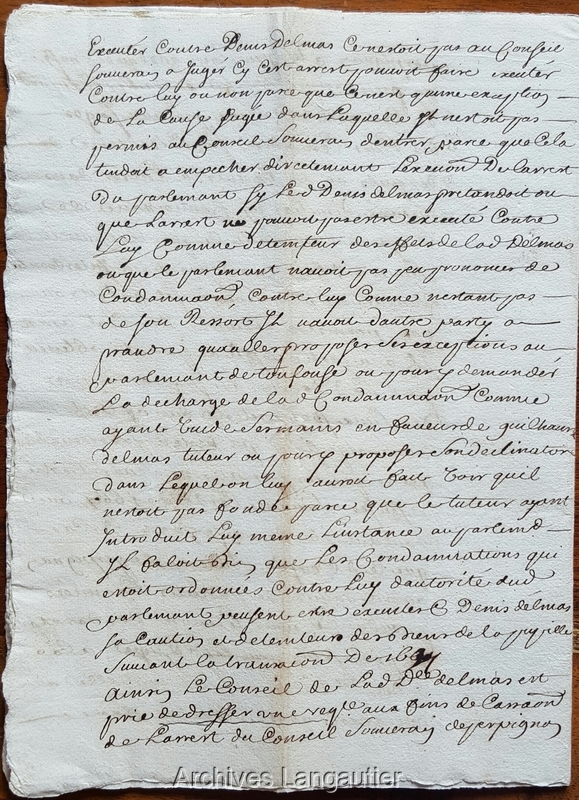 Executér Contre Denis Delmas Ce nestoit pas au Conseil
Souverain a Jugér Cy Cest arrest pouvoit faire executér
Contre luy ou non parce que Cenest quune exception
de La Cause Jugée dans Laquelle Il nestoit pas
permis au Conseil Souverain dentrer parce que Cela
tendoit a empecher directement Lexecuon De larrest
Du parlement Sy Led Denis delmas pretandoit ou
que Larrest ne pouvoit pas estre executé Contre
Luy Comme detempteur des effets de lad Delmas
ou que le parlement navoit pas peu prononcer de
Condamnaon Contre luy Comme nestant pas
de son Ressort Il navoit dautre party a
prandre qua aller proposer Ses exceptions au
parlement de toulouse ou pour y demandér
La decharge de lad Condamnaon Comme
ayant en faveur de guilhaume
delmas tuteur ou pour y proposer Son declinatoire
dans Lequel on luy auroit fait voir quil
nestoit pas fondé parce que le tuteur ayant
Introduit Luy meme Linstance au parlemt
Il faloit bien que Les Condamnations qui
estoit ordonnées contre Luy dautorité dud
parlement peusent estre executées C Denis delmas
sa Caution et detenteur des biens de la pupille
Suivant la transacon De
ainsi Le Conseil de Lad Dlle delmas est
prié de dresser une reqte aux fins de Cassaon
de Larrest du Conseil Souverain de perpignan
Archives Langautier